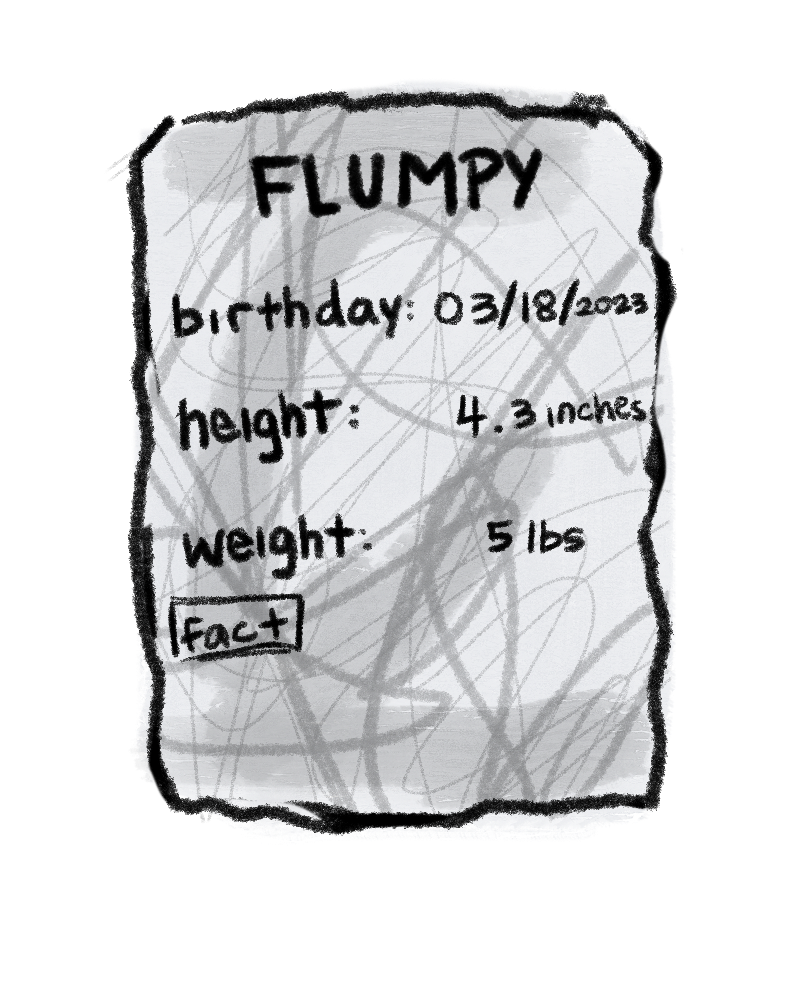 FLUMPY
birthday: 03/18/2023
height: 4.3 inches
weight: 5 lbs
fact